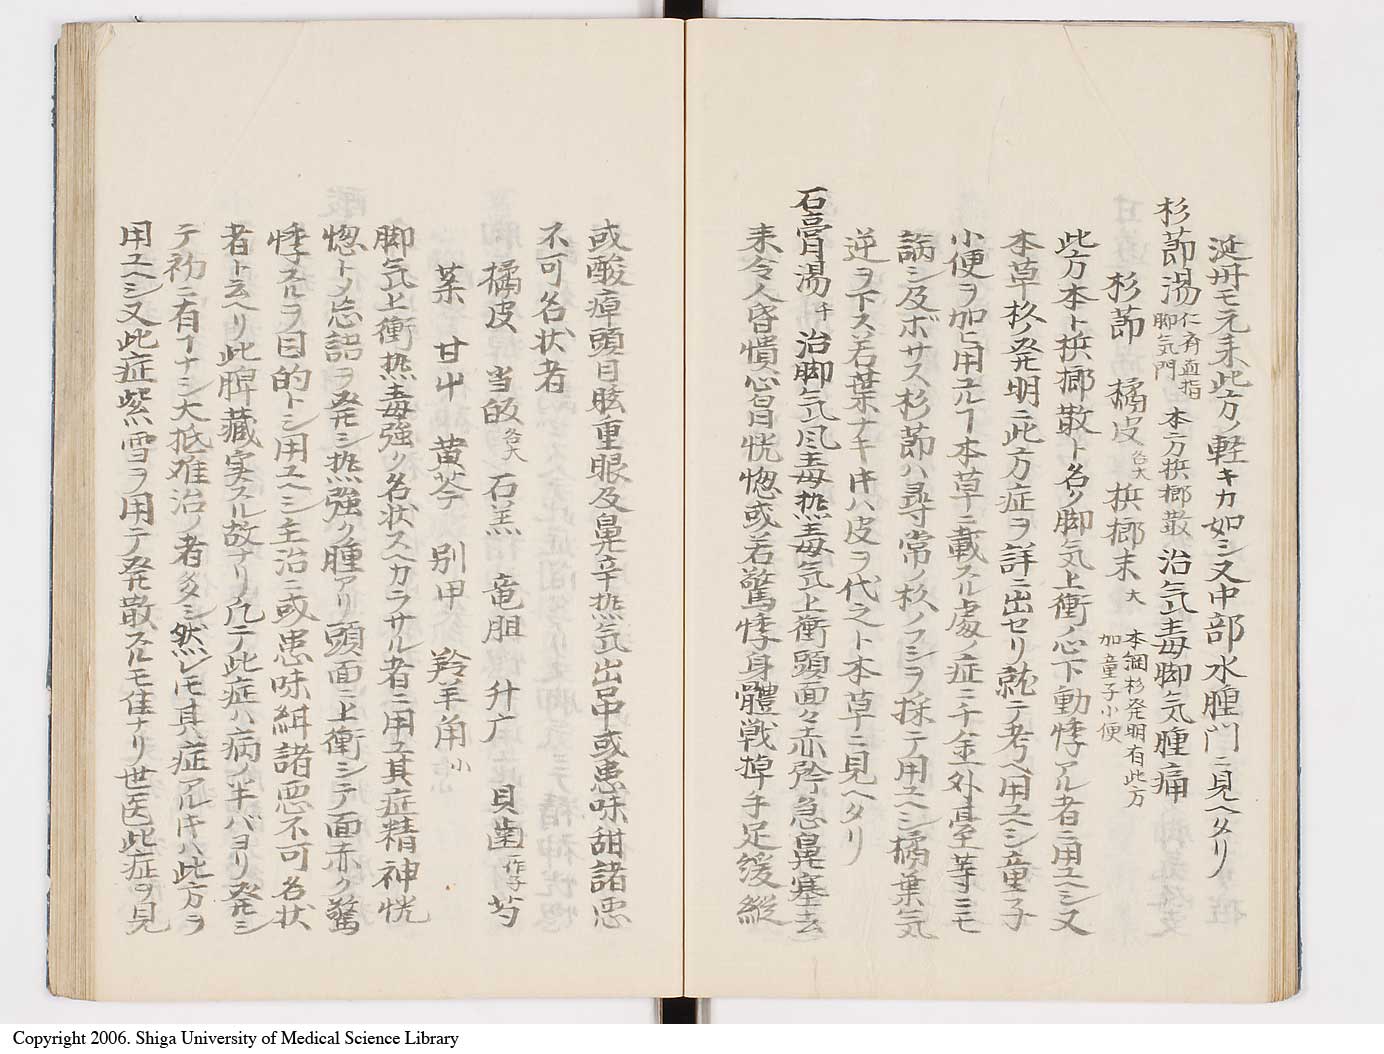 涎丹モ元来此方ノ軽キカ如シ又中部水腫門ニ見ヘタリ
杉莭湯 仁斉直指脚気門 本方梹榔散 治気毒脚気腫痛
杉莭 橘皮各大 梹榔末大 本綱杉発明有此方加童子小便
此方本ト梹榔散ト名ク脚気上衝ノ心下動悸アル者ニ用ユヘシ又
本草杉ノ発明ニ此方症ヲ詳ニ出セリ就テ考ヘ用ユヘシ童子
小便ヲ加ヒ用ユルヿ本草ニ載スル処ノ症ミ千金外臺等ミモ
論シ及ボサス杉莭ハ尋常ノ杉ノフシヲ採テ用ユヘシ橘葉気
逆ヲ下ス若葉ナキ𪜈ハ皮ヲ代之ト本草ニ見ヘタリ
石膏湯 千 治脚気風毒𤍠毒気上衝頭面々赤矜急鼻塞去
来令人昏憒心胷恍惚或若驚悸身體戦掉手足緩縦
或酸痺頭目眩重眼及鼻辛𤍠気出口中或患味甜諸悪
不可名状者
橘皮 当皈各大 石羔 竜胆 升广 貝歯一作子 芍
薬 甘艸 黄芩 別甲 羚羊角小
脚気上衝𤍠毒強ク名状スヘカラサル者ニ用ユ其症精神恍
惚トメ忘語ヲ発シ𤍠強ク腫アリ頭面ニ上衝シテ面赤ク驚
悸スルヲ目的トシ用ユヘシ主治ニ或患味䑙諸悪不可名状
者ト云ヘリ此脾藏実スル故ナリ凡テ此症ハ病ノ半バヨリ発シ
テ初ニ有ヿナシ大抵难治ノ者多シ然レ𪜈其症アル𪜈ハ此方ヲ
用ユヘシ又此症紫雪ヲ用テ発散スルモ佳ナリ世医此症ヲ見
Copyright 2006. Shiga University of Medical Science Library